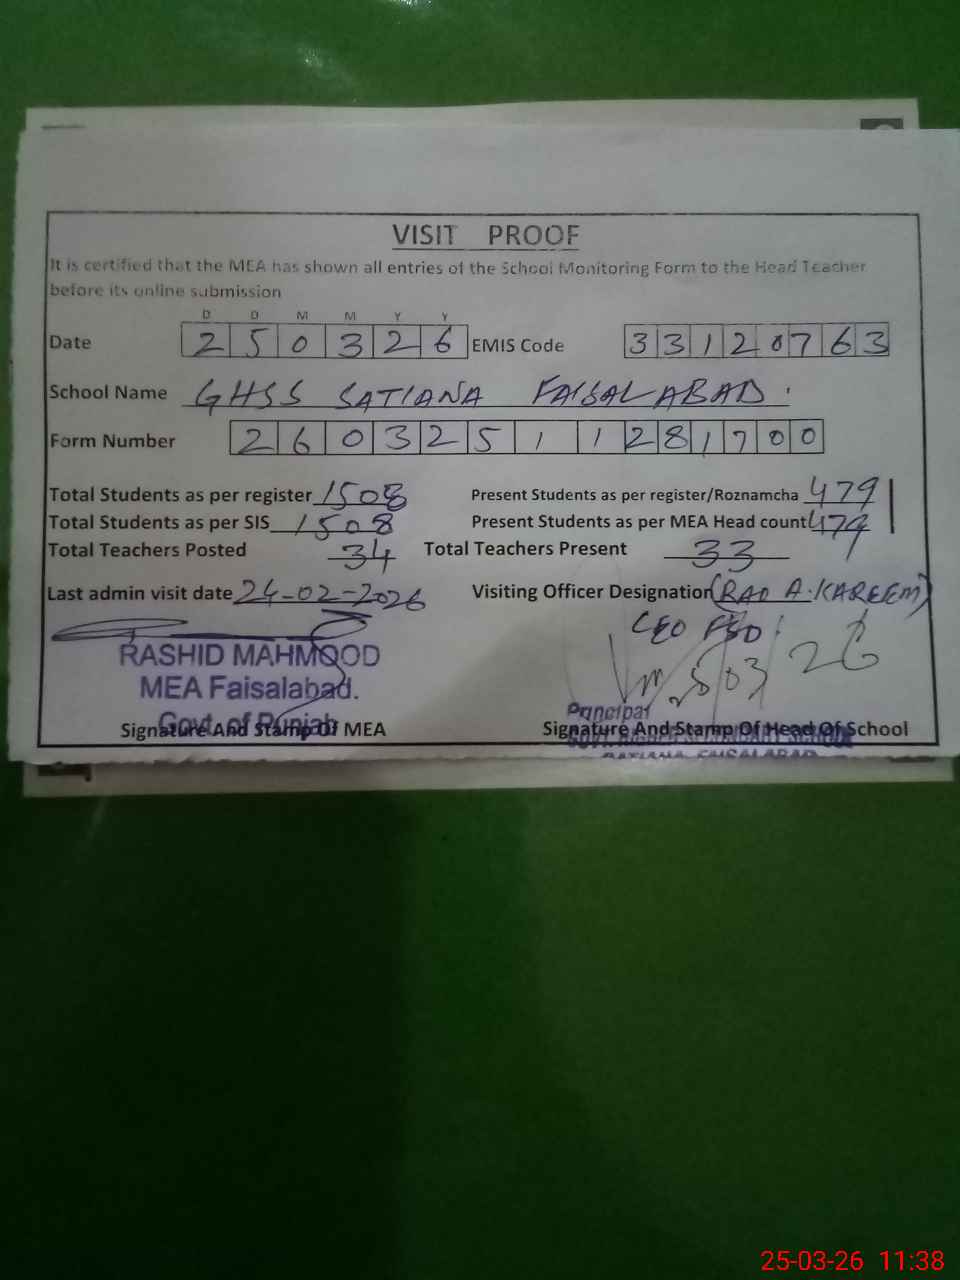 VISIT PROOF
It is certified that the MEA has shown all entries of the School Monitoring Form to the Head Teacher
before its online submission
D D M M Y Y
Date 2 5 0 3 2 6 EMIS Code 3 3 1 2 0 7 6 3
School Name GHSS SATIANA FAISALABAD.
Form Number 2 6 0 3 2 5 1 1 2 8 1 7 0 0
Total Students as per register 1508 Present Students as per register/Roznamcha 479
Total Students as per SIS 1508 Present Students as per MEA Head count 479
Total Teachers Posted 34 Total Teachers Present 33
Last admin visit date 24-02-2026 Visiting Officer Designation (RAO A.KAREEM)
CEO FSD
RASHID MAHMOOD
MEA Faisalabad.
Govt. of Punjab
25 03 26
Principal
Signature And Stamp Of MEA Signature And Stamp Of Head Of School
SATIANA, FAISALABAD
25-03-26 11:38